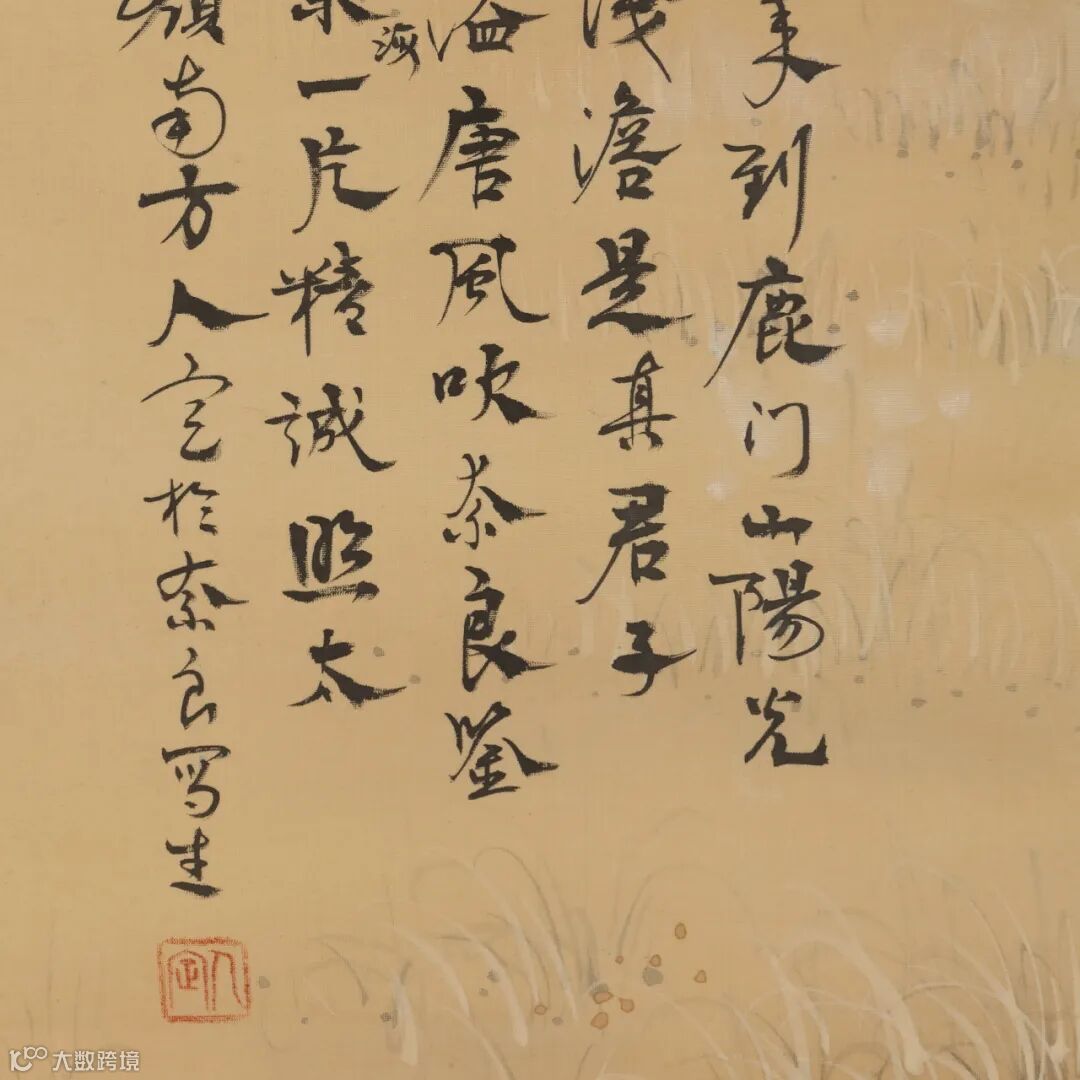 来到鹿门山陽光
浅澹是真君子
溢唐风吹奈良鉴
海
一片精誠照太
嶺南方人定於奈良写生
人定
大数跨境